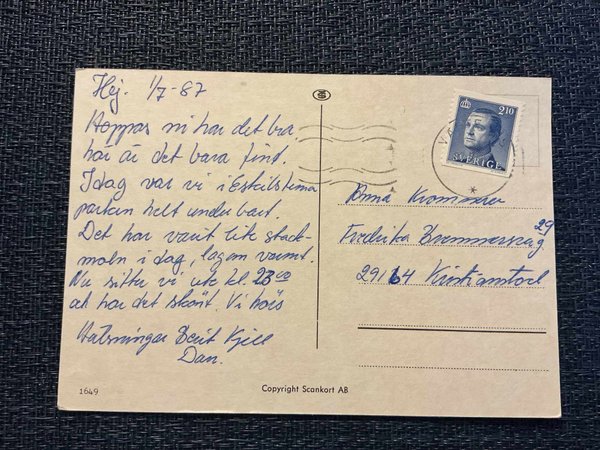 Hej. 1/7-87
Hoppas ni har det bra
här är det bara fint.
Idag var vi i Eskilstuna
parken helt underbart.
Det har varit lite stack-
moln i dag, lagom varmt.
Nu sitter vi ute kl. 23 00
och har det skönt. Vi hörs
Hälsningar Berit Kjell
Dan.
2 10
SVERIGE
Anna
Fredrika Bremmersväg 29
291 64 Kristianstad
1649
Copyright Scankort AB